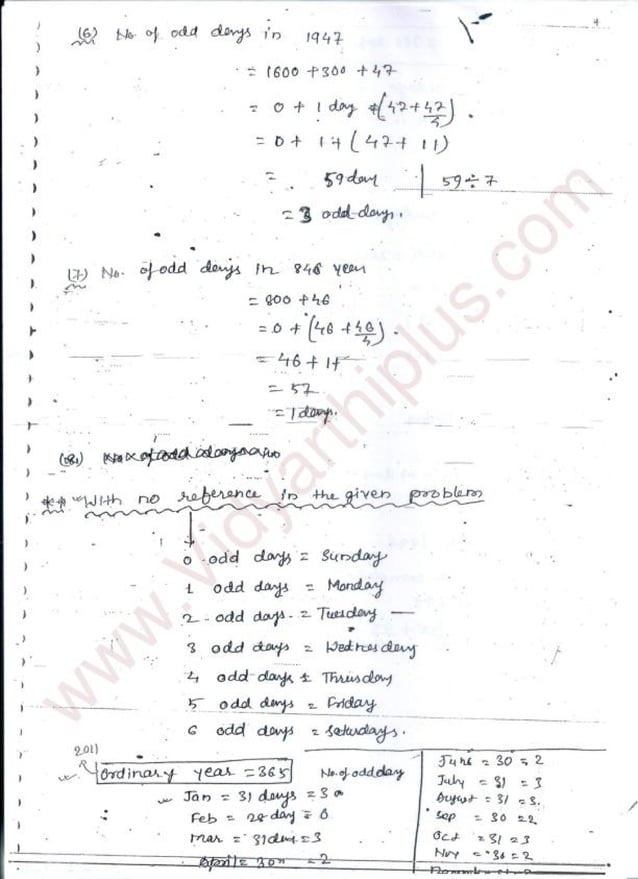 4
(6) No of odd days in 1947
= 1600 + 300 + 47
= 0 + 1 day + (47 + 47/4).
= 0 + 1 + (47 + 11)
= 59 day | 59 ÷ 7
= 3 odd days.
(7) No. of odd days in 846 year
= 800 + 46
= 0 + (46 + 46/4).
= 46 + 11
= 57
= 1 days.
(8)
** "With no reference in the given problem
0 odd days = Sunday
1 odd days = Monday
2 odd days = Tuesday
3 odd days = Wednesday
4 odd days = Thrusday
5 odd days = Friday
6 odd days = Saturdays.
2011
Ordinary year = 365 No. of odd day
Jan = 31 days = 3
Feb = 28 day = 0
Mar = 31 day = 3
April = 30 = 2
June = 30 = 2
July = 31 = 3
August = 31 = 3.
Sep = 30 = 2
Oct = 31 = 3
Nov = 30 = 2
www.Vidyarthiplus.com